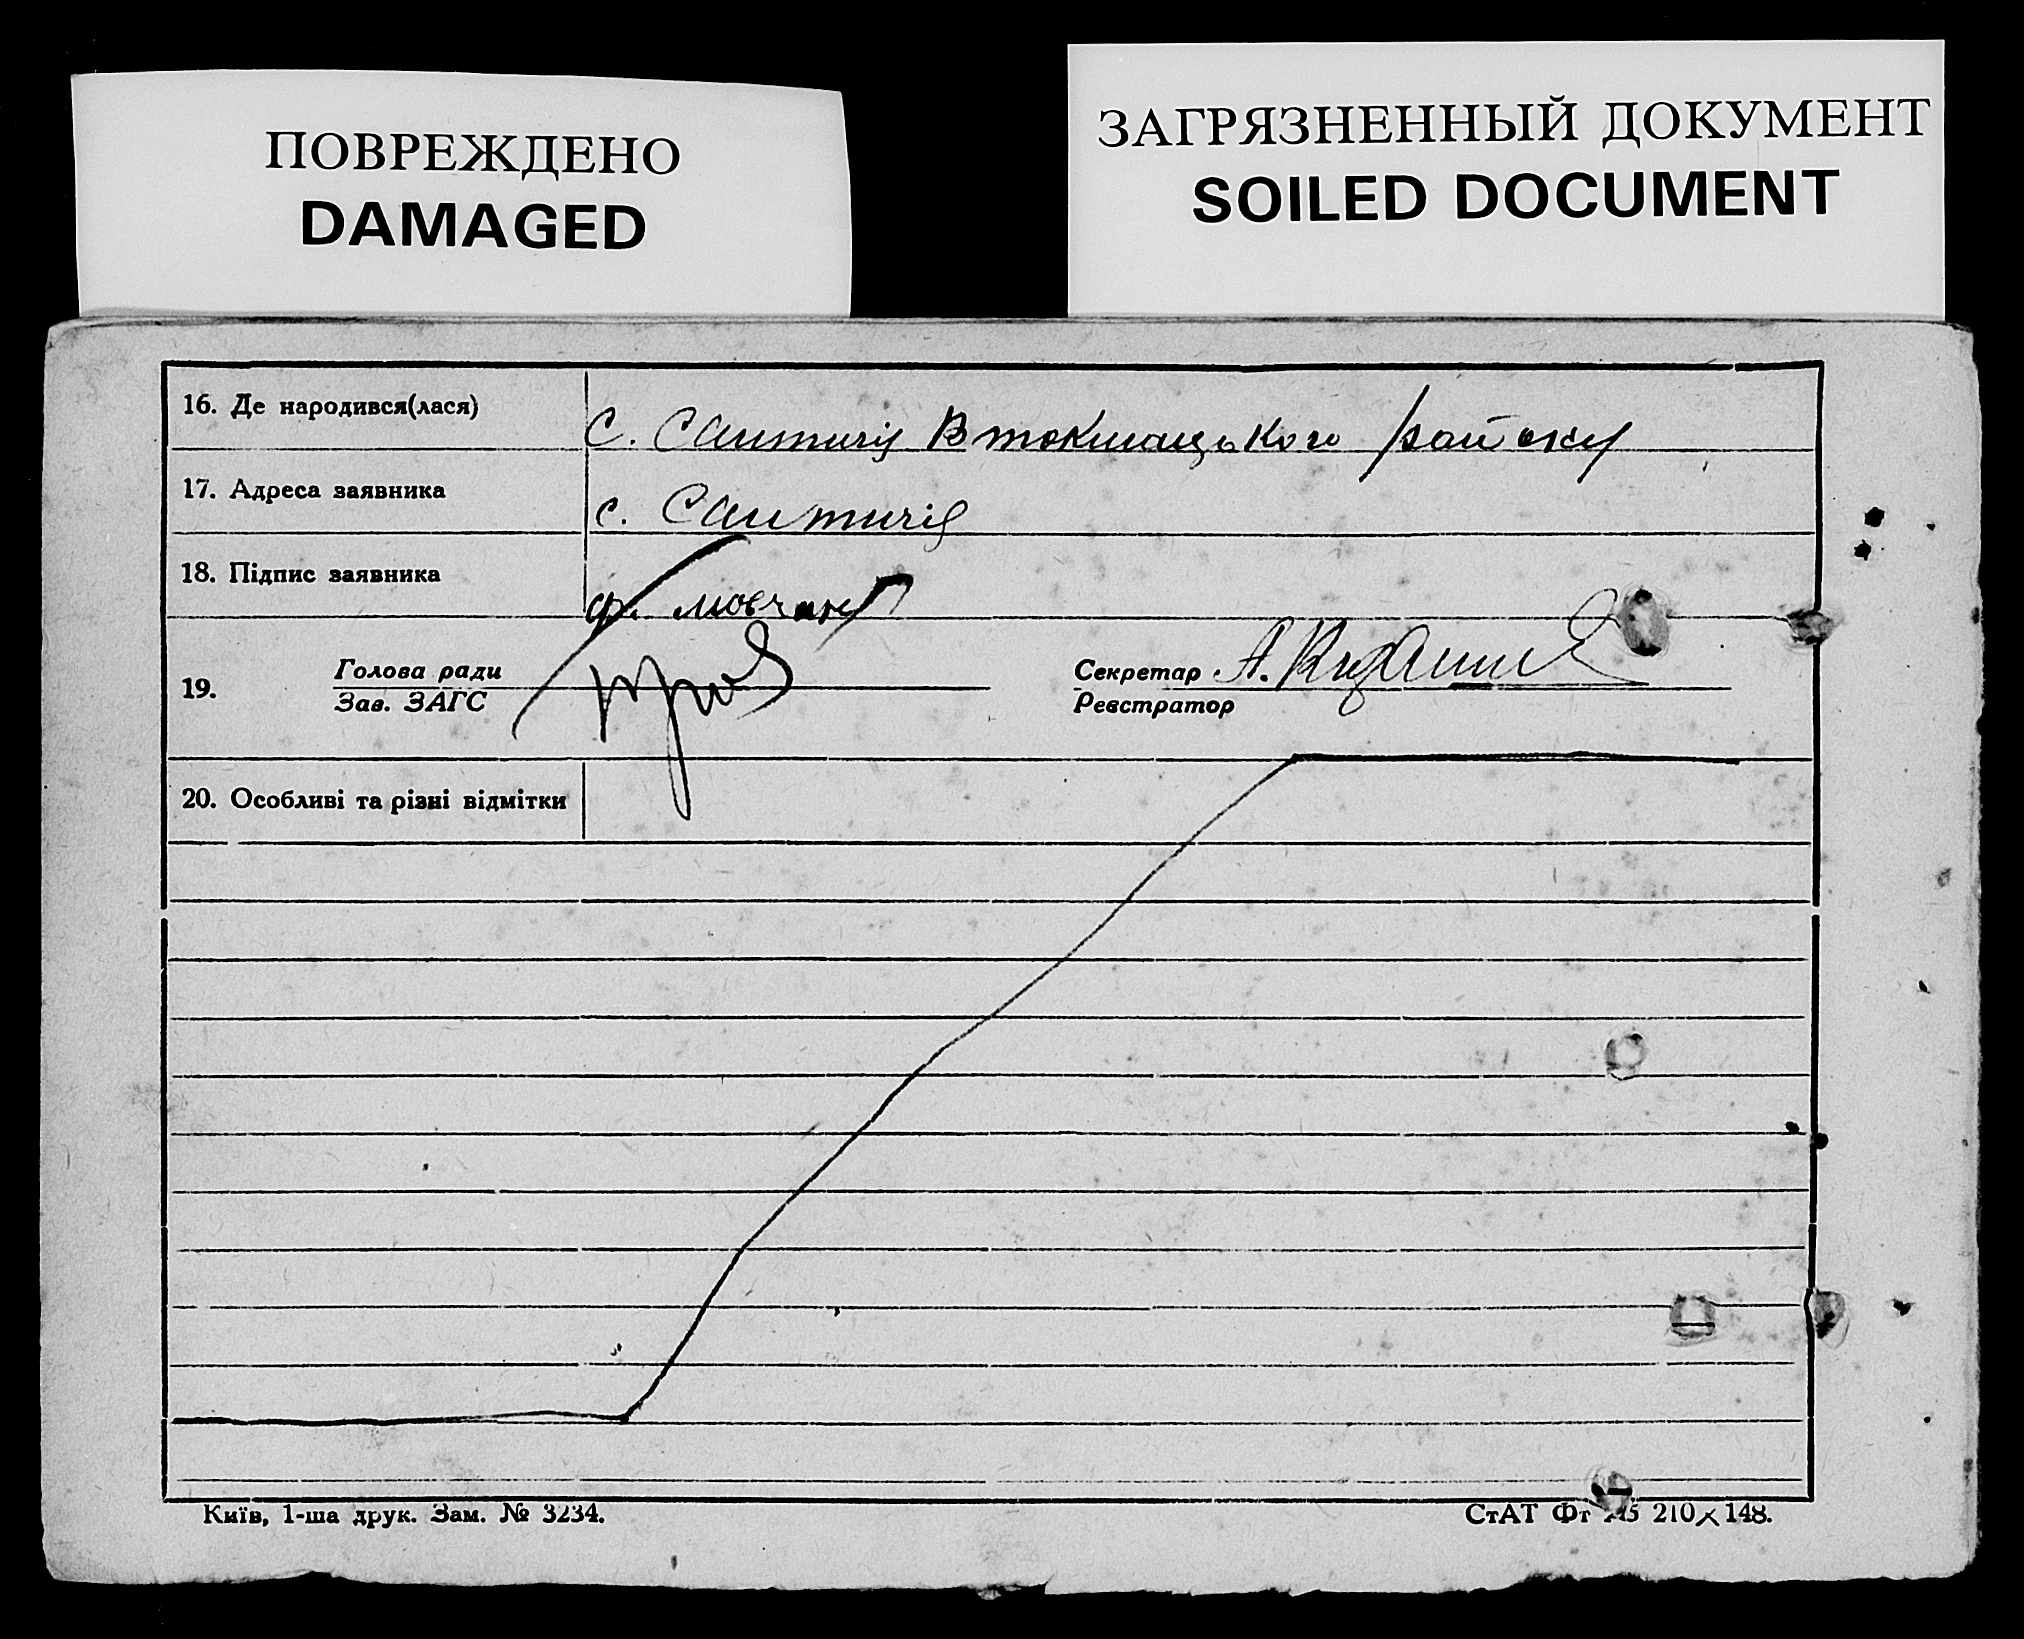 ПОВРЕЖДЕНО
DAMAGED
ЗАГРЯЗНЕННЫЙ ДОКУМЕНТ
SOILED DOCUMENT
16. Де народився(лася)
с. Салтичія В токмацького району
17. Адреса заявника
с. Салтичія
18. Підпис заявника
ф. мовчан
19.
Голова ради
Зав. ЗАГС
Секретар А.
Реєстратор
20. Особливі та різні відмітки
Київ, 1-ша друк. Зам. № 3234.
СтАТ Фт А5 210×148.